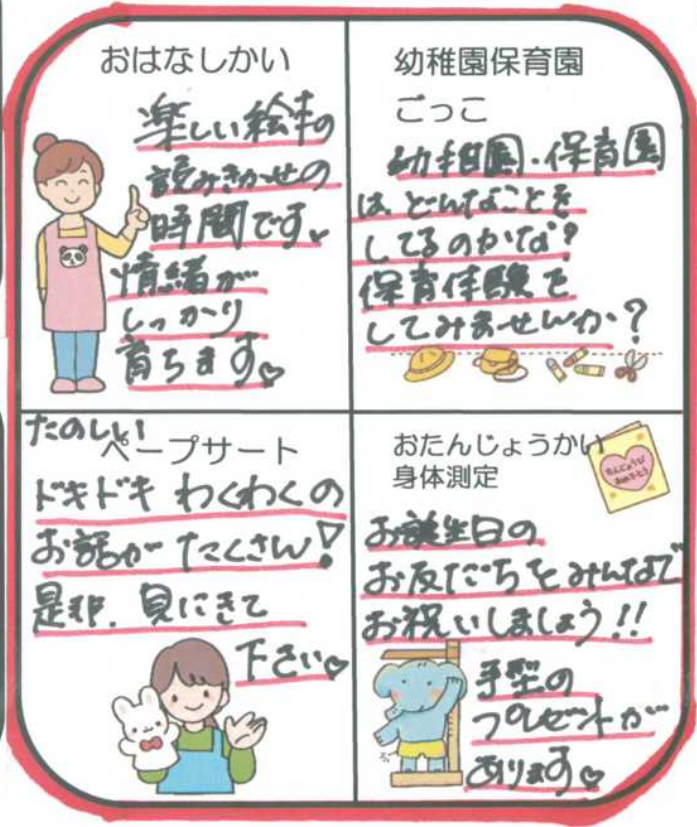 おはなしかい
楽しい絵本の
読みきかせの
時間です。
情緒が
しっかり
育ちます♡
幼稚園保育園
ごっこ
幼稚園・保育園
は、どんなことを
してるのかな?
保育体験を
してみませんか?
たのしい
ペープサート
ドキドキ わくわくの
お話が たくさん!
是非、見にきて
下さい♡
おたんじょうかい
身体測定
たんじょうび
おめでとう
お誕生日の
お友だちをみんなで
お祝いしましょう!!
手型の
プレゼントが
あります♡